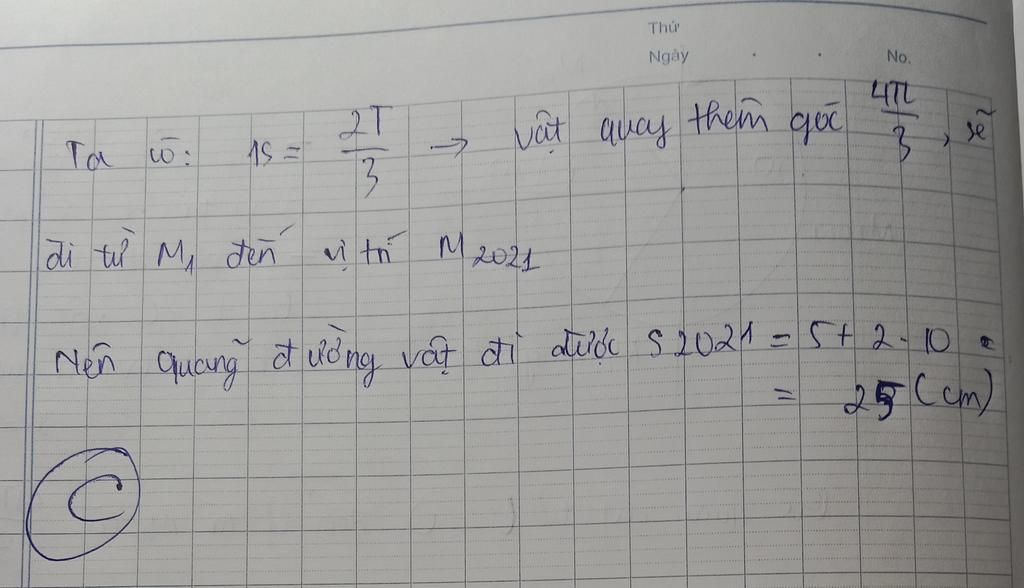 Thứ
Ngày . . No.
Ta có: 1s = 2T/3 → vật quay thêm góc 4π/3, sẽ
đi từ M1 đến vị trí M2021
Nên quãng đường vật đi được S2021 = 5 + 2.10
= 25 (cm)
C